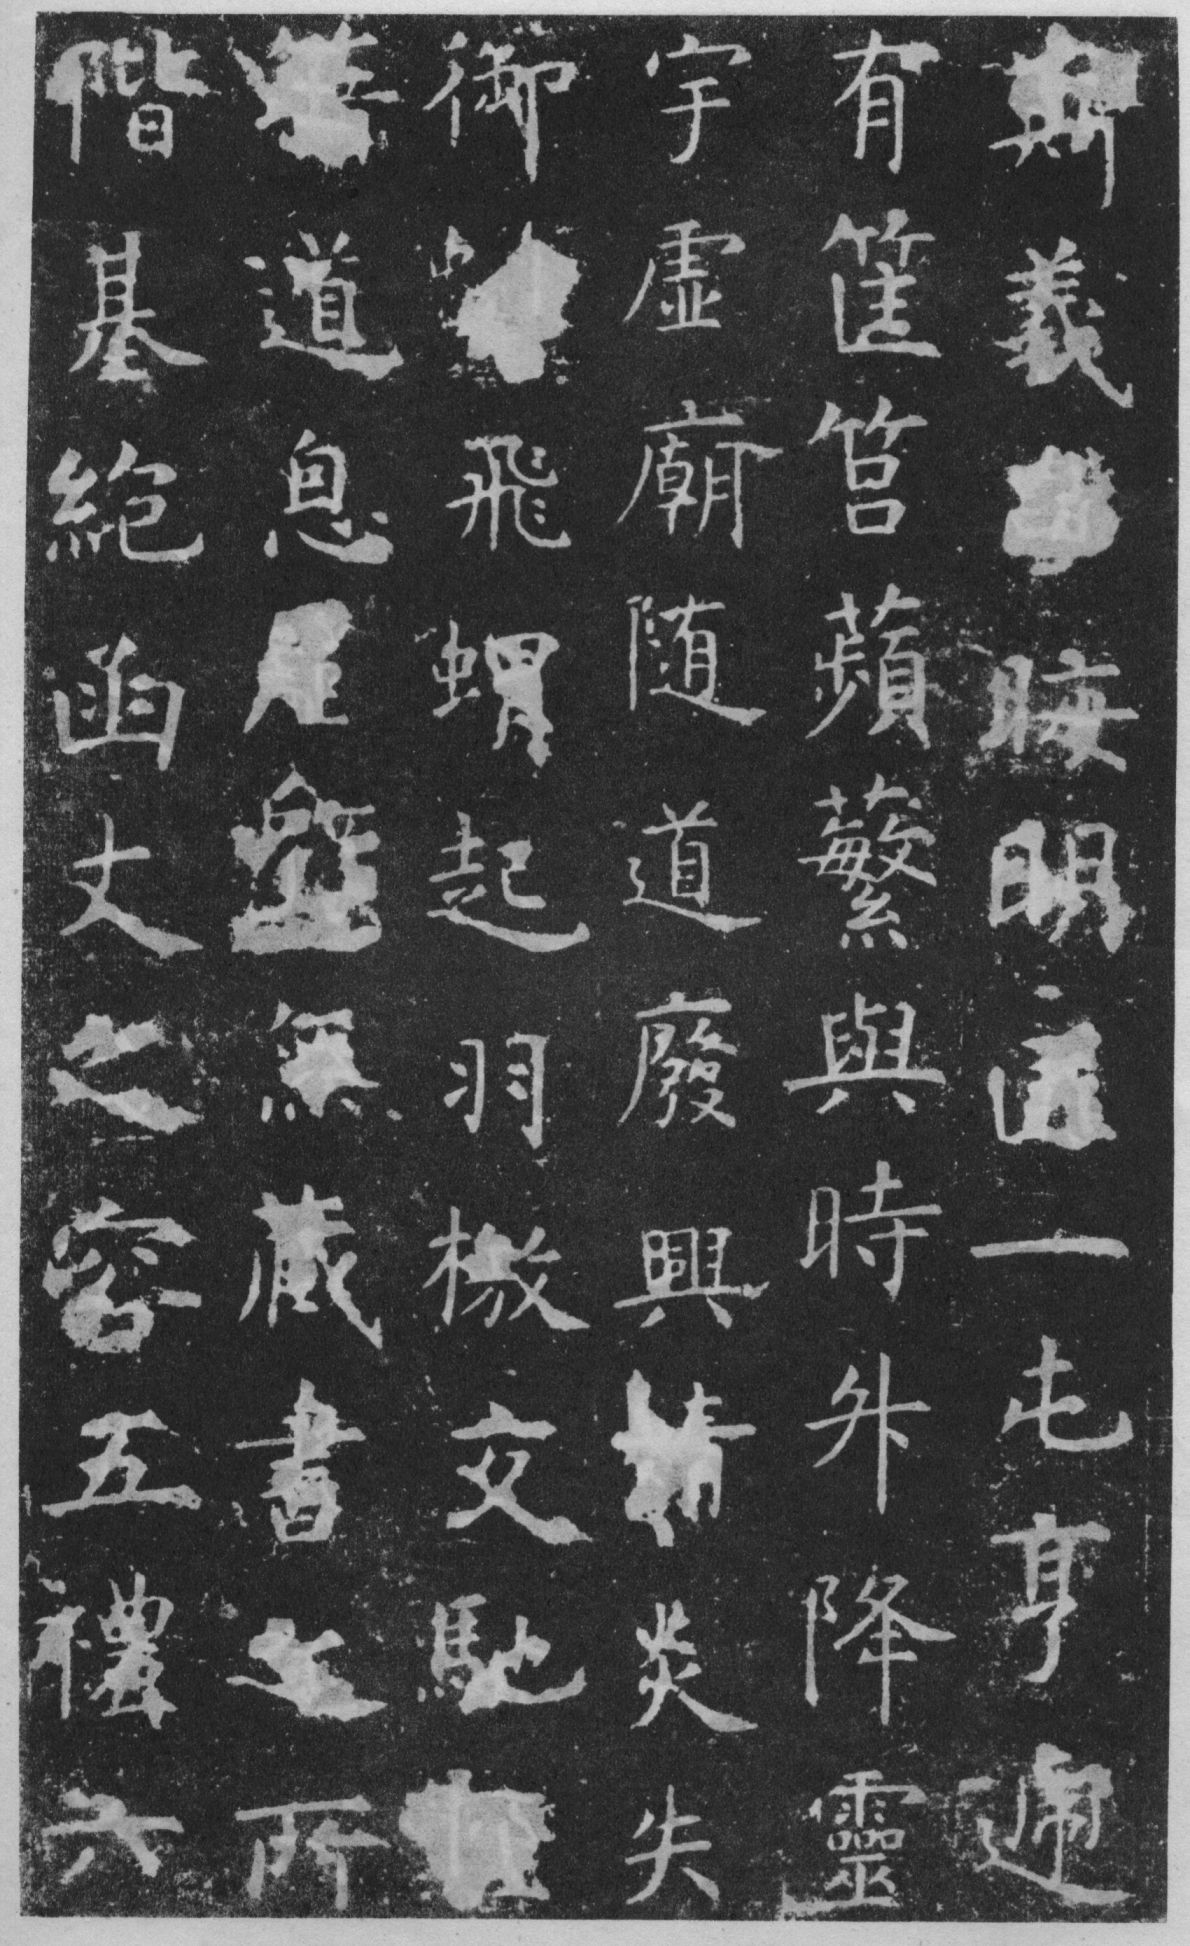 斯義晦明匪一屯亨遞
有筐筥蘋蘩與時升降靈
宇虛廟隨道廢興精炎失
御飛蝟起羽檄交馳
籍道息屋壁無藏書之所
階基絕函丈之容五禮六